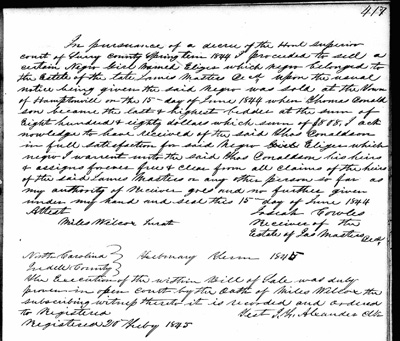 417
In pursuance of a decree of the Honl superior
court of Surry County Spring term 1844 I proceded to sell a
certain Negro Girl Named Eliza which negro belonged to
the Estate of the late James Masters Decd upon the usual
notice being given the said Negro was sold at the Town
of Hamptonvill on the 15th day of June 1844 when Thomas Conald
son became the last & highest bidder at the sum of
Eight hundred & eighty dollars which sum of $880 I ack
nowledge to have received of the said Thos Conaldson
in full satisfaction for said Negro Girl Eliza which
negro I warrent unto the said Thos Conaldson his heirs
& assigns forever free & clear from all claims of the heirs
of the said James Masters or any other person so far as
my authority of Reciever goes and no further given
under my hand and seal this 15 day of June 1844
Attest
Josiah Cowles
Miles Wilcox Jurat
Reciever of the
Estate of Jas Masters Decd
North Carolina
Iredell County
Februay Term 1845
The Execution of the within Bill of Sale was duly
proven in open court by the Oath of Miles Wilcox the
subscribing witness thereto it is recorded and ordered
to Registered
Test J. H. Alexander Clk
Registered 28 Feby 1845